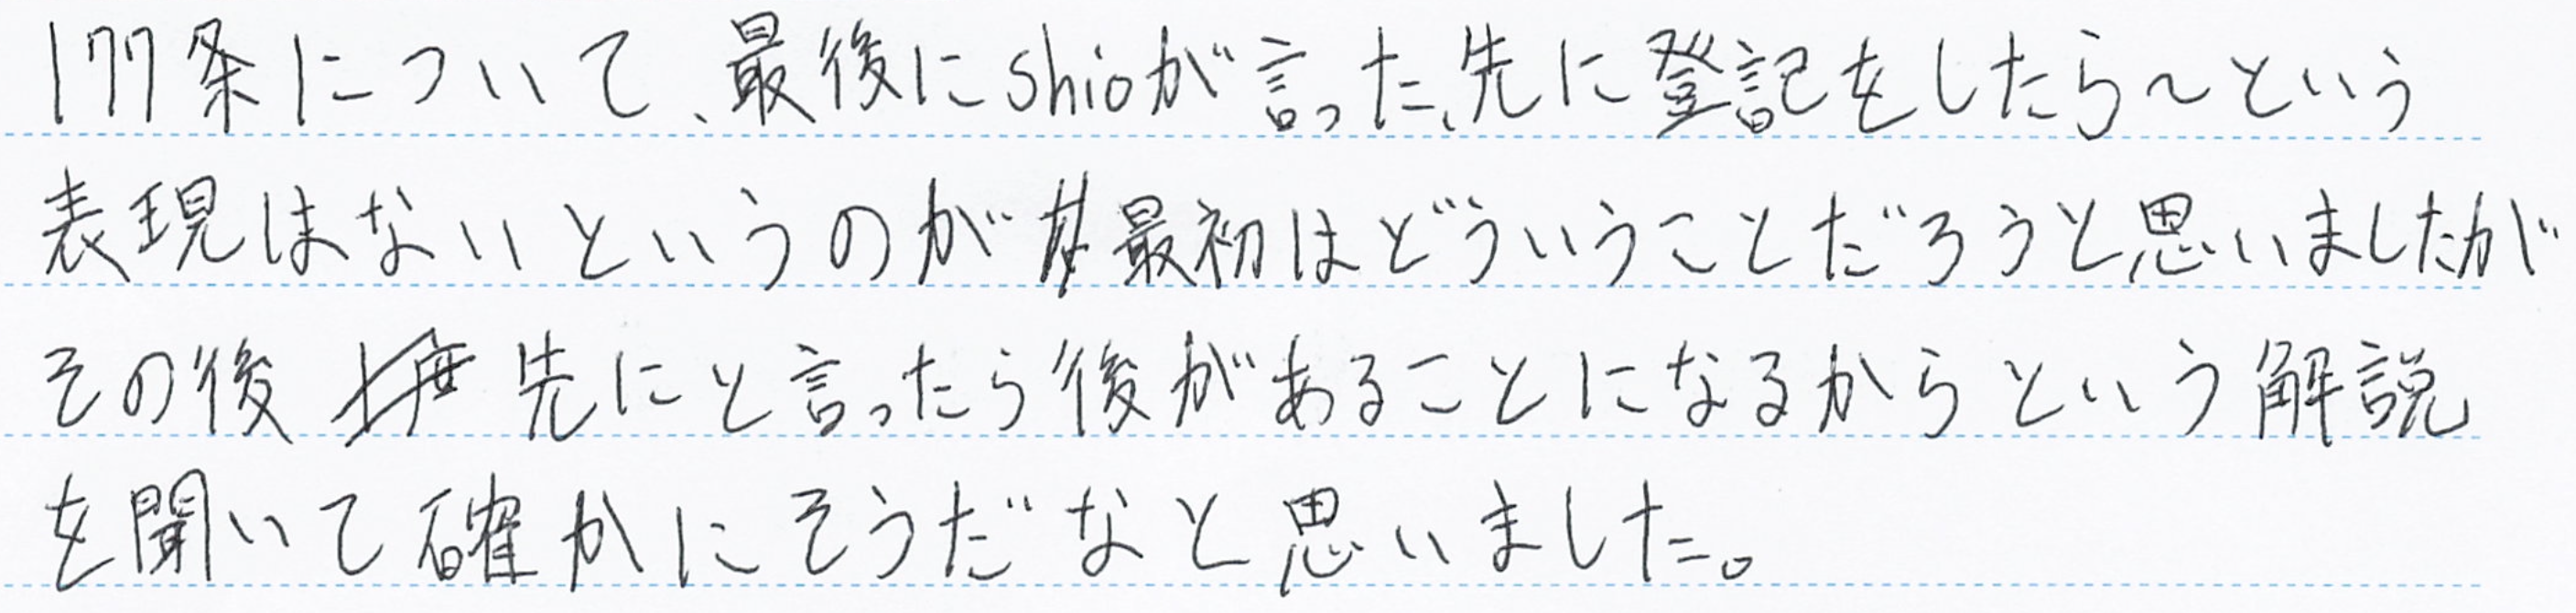 177条について、最後にshioが言った、先に登記をしたら～という
表現はないというのが最初はどういうことだろうと思いましたが
その後先にと言ったら後があることになるからという解説
を聞いて確かにそうだなと思いました。